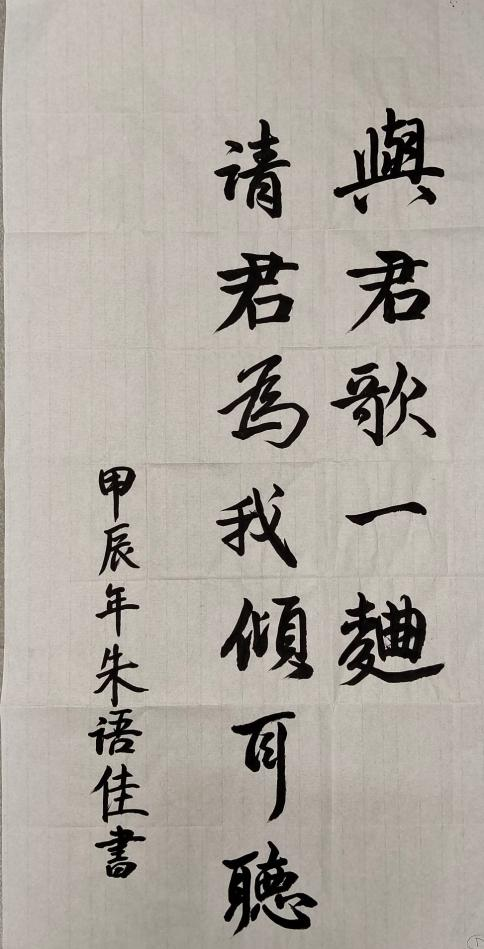 與君歌一麯
请君為我傾耳聽
甲辰年朱语佳書